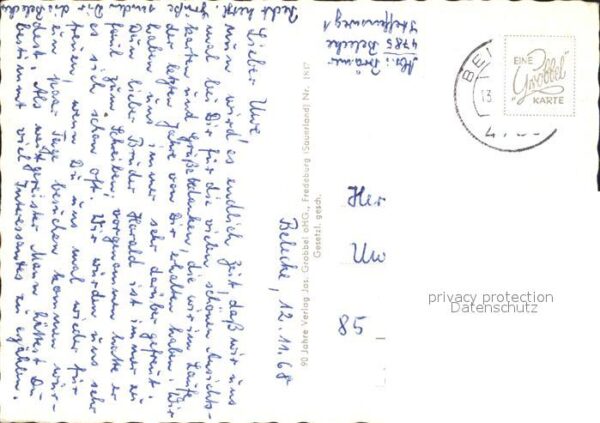 Belecke, 12.11.68
Lieber Uwe,
nun wird es endlich Zeit, daß wir uns
mal bei Dir für die vielen schönen Ansichts-
karten und Grüße bedanken, die wir im Laufe
der letzten Jahre von Dir erhalten haben. Wir
haben uns immer sehr darüber gefreut.
Dein lieber Bruder Harald ist immer zu
faul zum Schreiben, vorgenommen hatte er
es sich schon oft. Wir würden uns sehr
freuen, wenn Du uns mal wieder für
ein paar Tage besuchen kommen wür-
dest. Als weitgereister Mann hättest Du
bestimmt viel Interessantes zu erzählen.
Recht herzl. Grüße
senden Dir
die Belecker
Abs.:
4785 Belecke
90 Jahre Verlag Jos. Grobbel oHG., Fredeburg (Sauerland) Nr. 1817
Gesetzl. gesch.
BE
13
EINE
"Grobbel"
KARTE
Her
Uw
85
privacy protection
Datenschutz